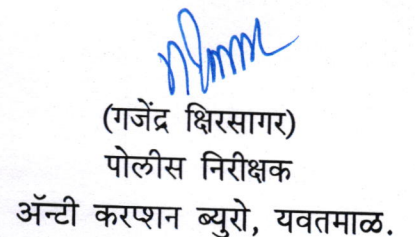 (गजेंद्र क्षिरसागर)
पोलीस निरीक्षक
ॲन्टी करप्शन ब्युरो, यवतमाळ.